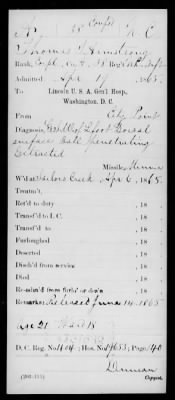 A 38 Confed N. C.
Thomas J. Armstrong
Rank, Capt., Co. 38 Reg't N.C. Inf
Admitted Apr 17, 1865.
To
Lincoln U. S. A. Gen'l Hosp.,
Washington, D. C.
From City Point
Diagnosis, L foot Dorsal
surface Ball penetrating
Extracted
Missile, Minnie
W'd at Sailors Creek, Apr 6, 1865.
Treatm't,
Ret'd to duty , 18 .
Transf'd to I. C. , 18 .
Transf'd to , 18 .
Furloughed , 18 .
Deserted , 18 .
Disch'd from service , 18 .
Died , 18 .
Re-adm'd from furlo' or des'n , 18 .
Remarks: Released June 14, 1865
Age 21 Ward 18
D. C. Reg. No. 404; Hos. No. 9653; Page 40
Copyist.